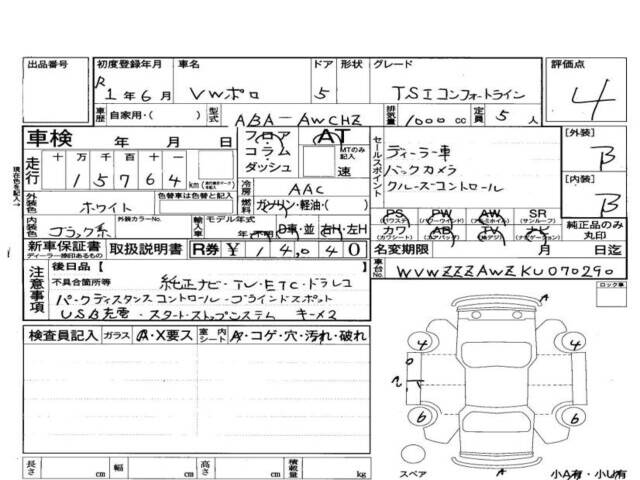 出品番号
初度登録年月
R 1年6月
車名
VWポロ
ドア
5
形状
グレード
TSIコンフォートライン
評価点
4
車歴
自家用・( )
型式
ABA-AWCHZ
排気量
1000 cc
定員
5人
車検 年 月 日
フロア
コラム
ダッシュ
AT
MTのみ記入
速
セールスポイント
ディーラー車
バックカメラ
クルーズコントロール
[外装]
B
[内装]
B
走行
十 万 千 百 十
1 5 7 6 4 km
冷房
AAC
現在色を記入→
外装色
ホワイト
色替車は色替と記入
燃料
ガソリン・軽油・( )
内装色
ブラック系
外装カラーNo.
輸入車
モデル年式
年・不明
D車・並
右H・左H
PS
(パワステ)
PW
(パワーウインド)
AW
(アルミホイル)
SR
(サンルーフ)
カワ
(カワシート)
AB
(エアバッグ)
TV
(地デジ)
ナビ
(ナビゲーション)
純正品のみ丸印
新車保証書
ディーラー捺印あるもの
取扱説明書
R券 ¥ 14,040
名変期限 月 日迄
車台No.
WVWZZZAWZKU070290
注意事項
後日品[ ]
不具合箇所等
純正ナビ・TV・ETC・ドラレコ
パークディスタンスコントロール・ブラインドスポット
USB充電・スタートストップシステム キーメ2
ロック車
検査員記入
ガラス
A・X要ス
室内シート
A・コゲ・穴・汚れ・破れ
A
4
4
6
6
A
スペア
小A有・小U有
長さ cm
幅 cm
高さ cm
積載量 kg